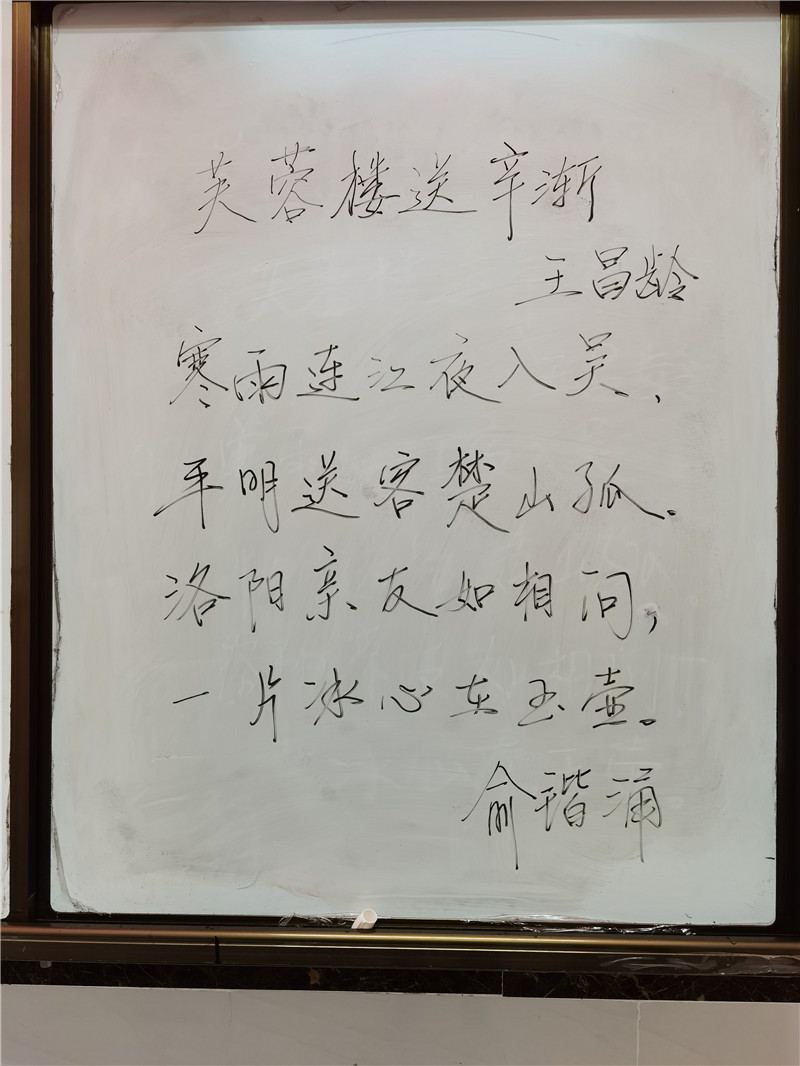 芙蓉楼送辛渐
王昌龄
寒雨连江夜入吴、
平明送客楚山孤。
洛阳亲友如相问,
一片冰心在玉壶。
俞锴涌